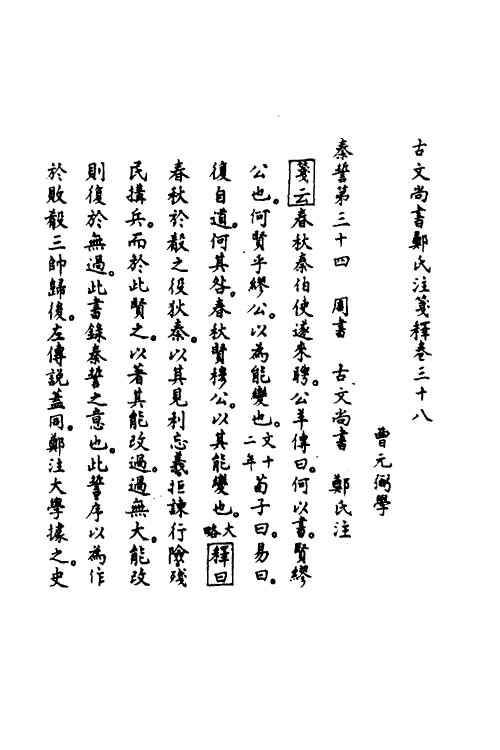 古文尚書鄭氏注箋釋卷三十八
曹元弼學
秦誓第三十四　周書　古文尚書　鄭氏注
箋云春秋秦伯使遂來聘。公羊傳曰。何以書。賢繆
公也。何賢乎繆公。以為能變也。文十二年荀子曰。易曰。
復自道。何其咎。春秋賢穆公。以其能變也。大略釋曰
春秋於殽之役狄秦。以其見利忘義拒諫行險殘
民搆兵。而於此賢之。以著其能改過。過無大。能改
則復於無過。此書錄秦誓之意也。此誓序以為作
於敗殽三帥歸後。左傳說蓋同。鄭注大學據之。史